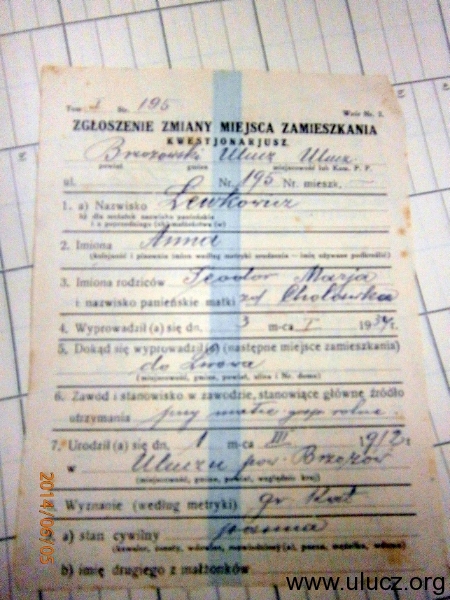 Tom I Nr. 195 Wzór Nr. 2.
ZGŁOSZENIE ZMIANY MIEJSCA ZAMIESZKANIA
KWESTJONARJUSZ.
Brzozowski Ulucz Ulucz
powiat gmina miejscowość lub Kom. P. P.
ul. Nr. 195 Nr. mieszk. —
1. a) Nazwisko Lewkowicz
b) dla mężatek nazwisko panieńskie
i z poprzedniego (ich) małżeństwa (w)
2. Imiona Anna
(kolejność i pisownia imion według metryki urodzenia — imię używane podkreślić)
3. Imiona rodziców Teodor Marja
i nazwisko panieńskie matki zd Cholowka
4. Wyprowadził (a) się dn. 3 m-ca I 1934 r.
5. Dokąd się wyprowadził (a) (następne miejsce zamieszkania)
do Lwowa
(miejscowość, gmina, powiat, ulica i Nr. domu)
6. Zawód i stanowisko w zawodzie, stanowiące główne źródło
utrzymania przy matce gosp rolne
7. Urodził (a) się dn. 1 m-ca III 1912 r
w Uluczu pow. Brzozów
(miejscowość, gmina, powiat, względnie kraj)
Wyznanie (według metryki) gr Kat
a) stan cywilny panna
(kawaler, żonaty, wdowiec, rozwiedziony (a), panna, mężatka, wdowa)
b) imię drugiego z małżonków
2014/06/05
www.ulucz.org